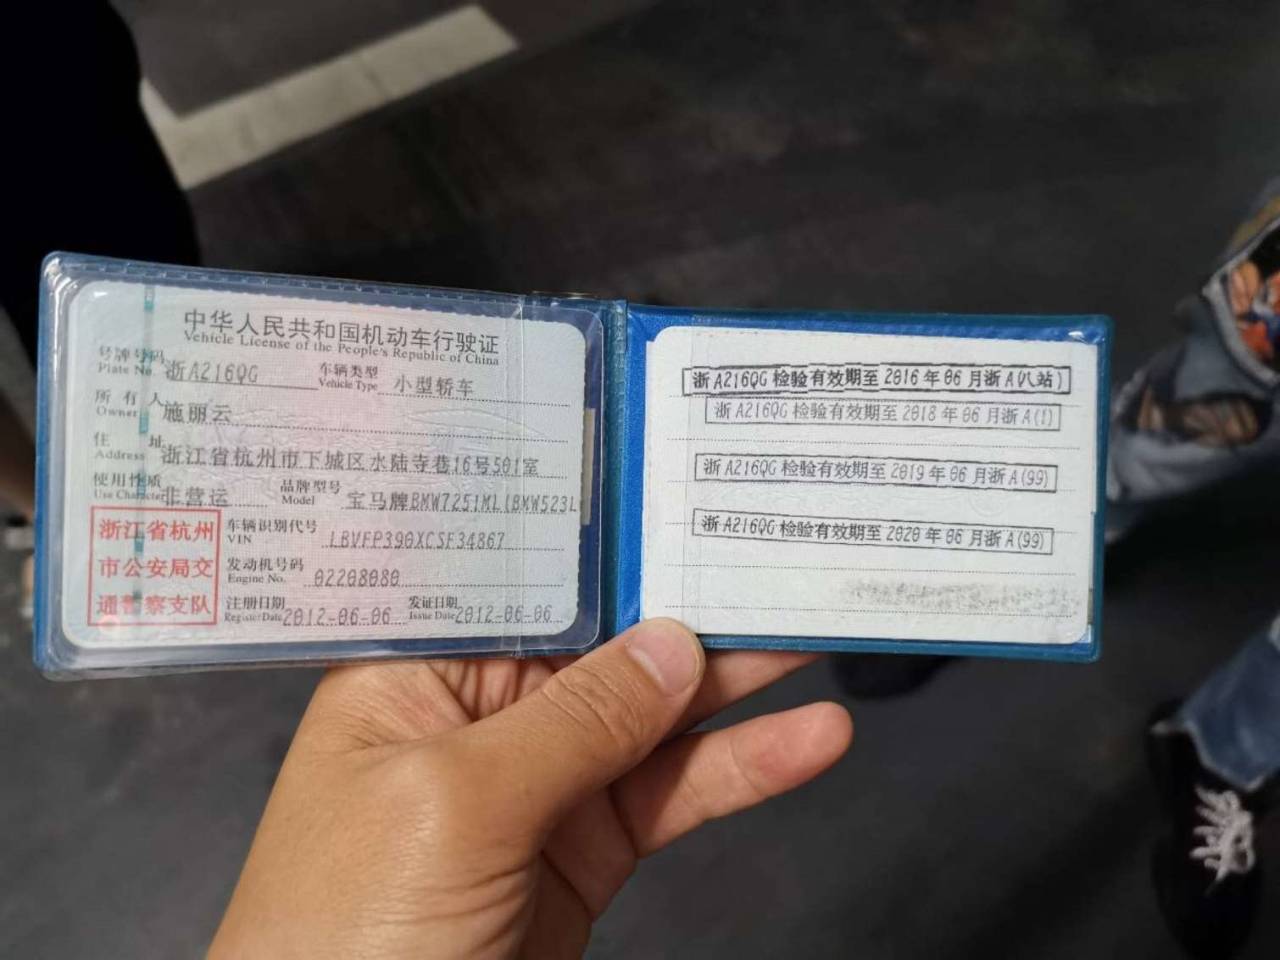 中华人民共和国机动车行驶证
Vehicle License of the People's Republic of China
号牌号码 浙A216QG 车辆类型 小型轿车
Plate No. Vehicle Type
所有人 施丽云
Owner
住址 浙江省杭州市下城区水陆寺巷16号501室
Address
使用性质 非营运 品牌型号 宝马牌BMW7251ML(BMW523L
Use Character Model
浙江省杭州
市公安局交
通警察支队
车辆识别代号 LBVFP390XCSF34867
VIN
发动机号码 02208080
Engine No.
注册日期 2012-06-06 发证日期 2012-06-06
Register Date Issue Date
浙A216QG检验有效期至2016年06月浙A(八站)
浙A216QG检验有效期至2018年06月浙A(1)
浙A216QG检验有效期至2019年06月浙A(99)
浙A216QG检验有效期至2020年06月浙A(99)